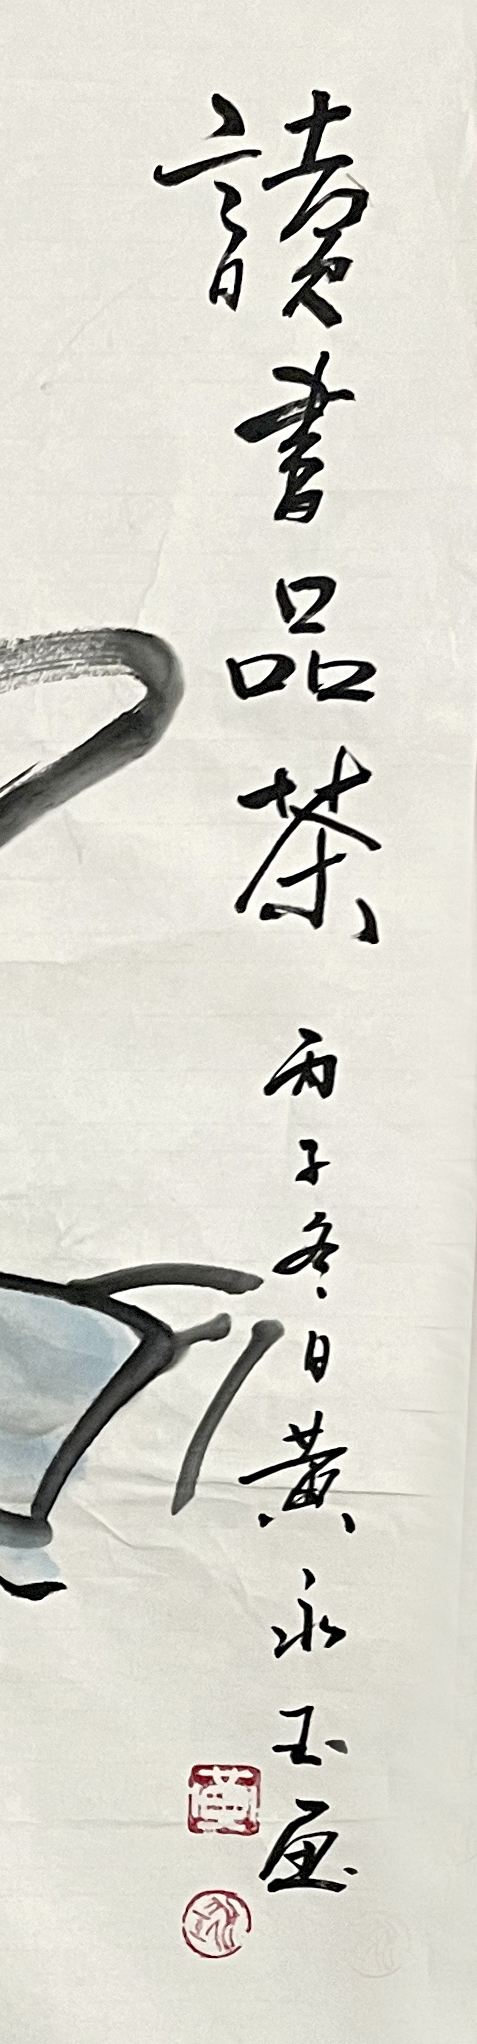 讀書品茶 丙子冬日黃永玉畫
黃